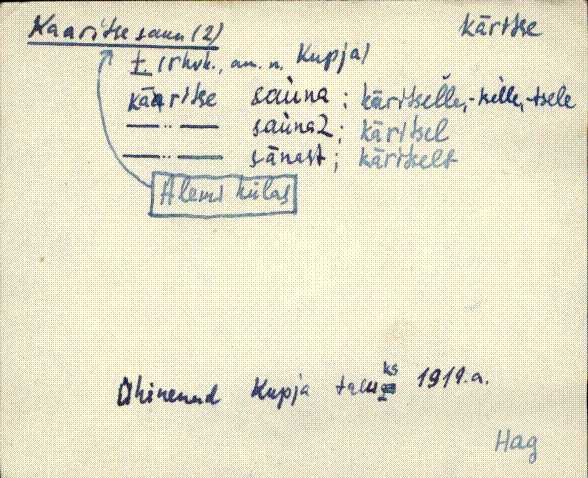 Kaaritse saun (2) kärtse
t (rhvk., am. n. Kupja)
kääritse saùna; käritselle, -selle, -tsele
—..— saùna2; käritsel
—..— sänast; käritselt
Alemi külas
Ühinenud Kupja taluks 1919.a.
Hag